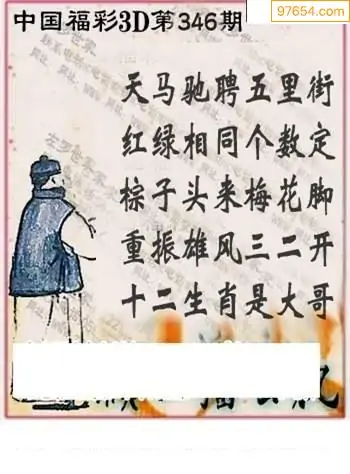 中国福彩3D第346期
97654.com
天马驰聘五里街
红绿相同个数定
棕子头来梅花脚
重振雄风三二开
十二生肖是大哥